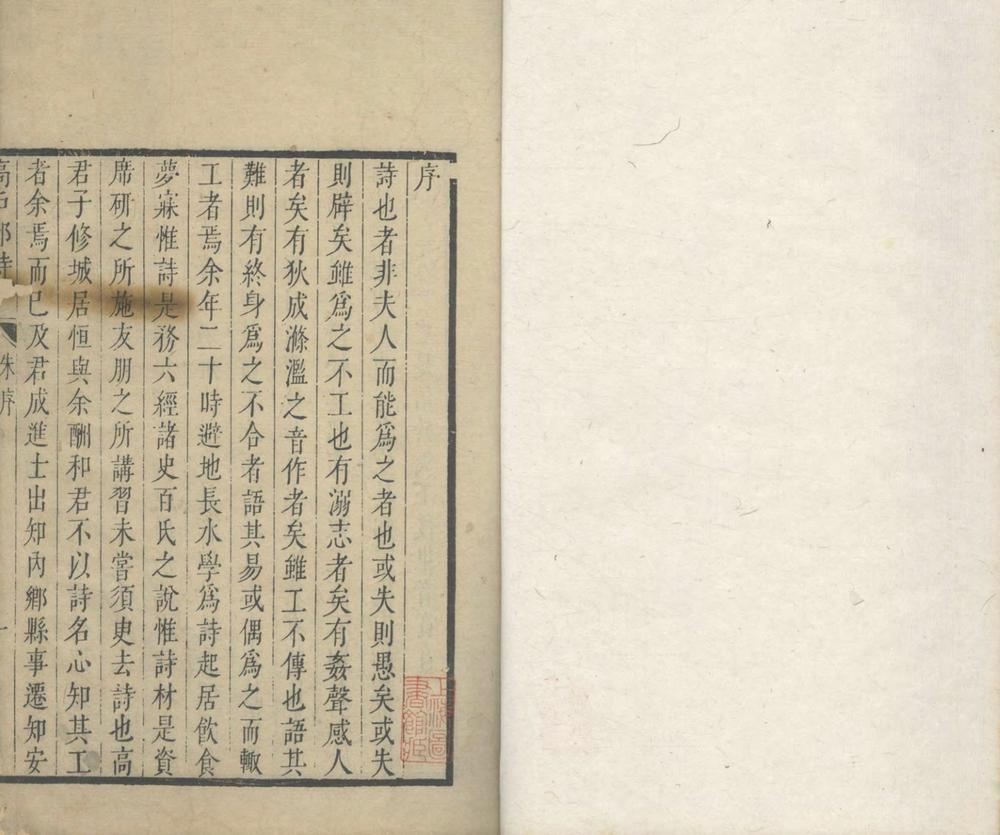 序
詩也者非夫人而能爲之者也或失則愚矣或失
則辟矣雖爲之不工也有溺志者矣有姦聲感人
者矣有狄成滌濫之音作者矣雖工不傳也語其
難則有終身爲之不合者語其易或偶爲之而輙
工者焉余年二十時避地長水學爲詩起居飲食
夢寐惟詩是務六經諸史百氏之說惟詩材是資
席研之所施友朋之所講習未嘗須臾去詩也高
君子修城居恒與余酬和君不以詩名心知其工
者余焉而已及君成進士出知內鄉縣事遷知安
高戶部詩
朱序
一
上海圖
書館藏